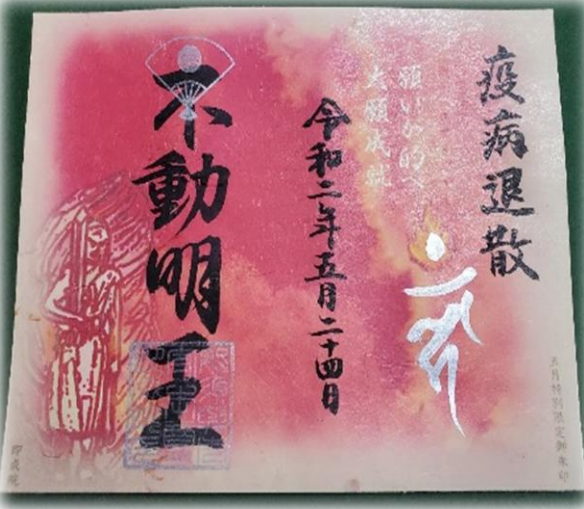 疫病退散
願いが的へ
大願成就
令和二年五月二十四日
不動明王
五月特別限定御朱印
即成院